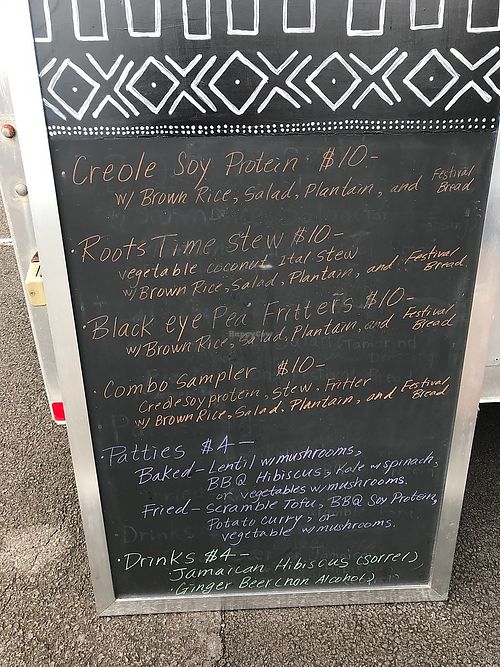 · Creole Soy Protein $10-
w/ Brown Rice, Salad, Plantain, and Festival Bread
· Roots Time Stew $10-
vegetable coconut Ital Stew
w/ Brown Rice, Salad, Plantain, and Festival Bread
· Black eye Pea Fritters $10-
w/ Brown Rice, Salad, Plantain, and Festival Bread
· Combo Sampler $10-
Creole soy protein, Stew. Fritter
w/ Brown Rice, Salad. Plantain, and Festival Bread
· Patties $4-
Baked- Lentil w/mushrooms,
BBQ Hibiscus, Kale w spinach,
or vegetables w/mushrooms.
Fried- Scramble Tofu, BBQ Soy Protein,
Potato curry, or
vegetable w/mushrooms.
· Drinks $4-
Jamaican Hibiscus (sorrel)
· Ginger Beer (non Alcohol)